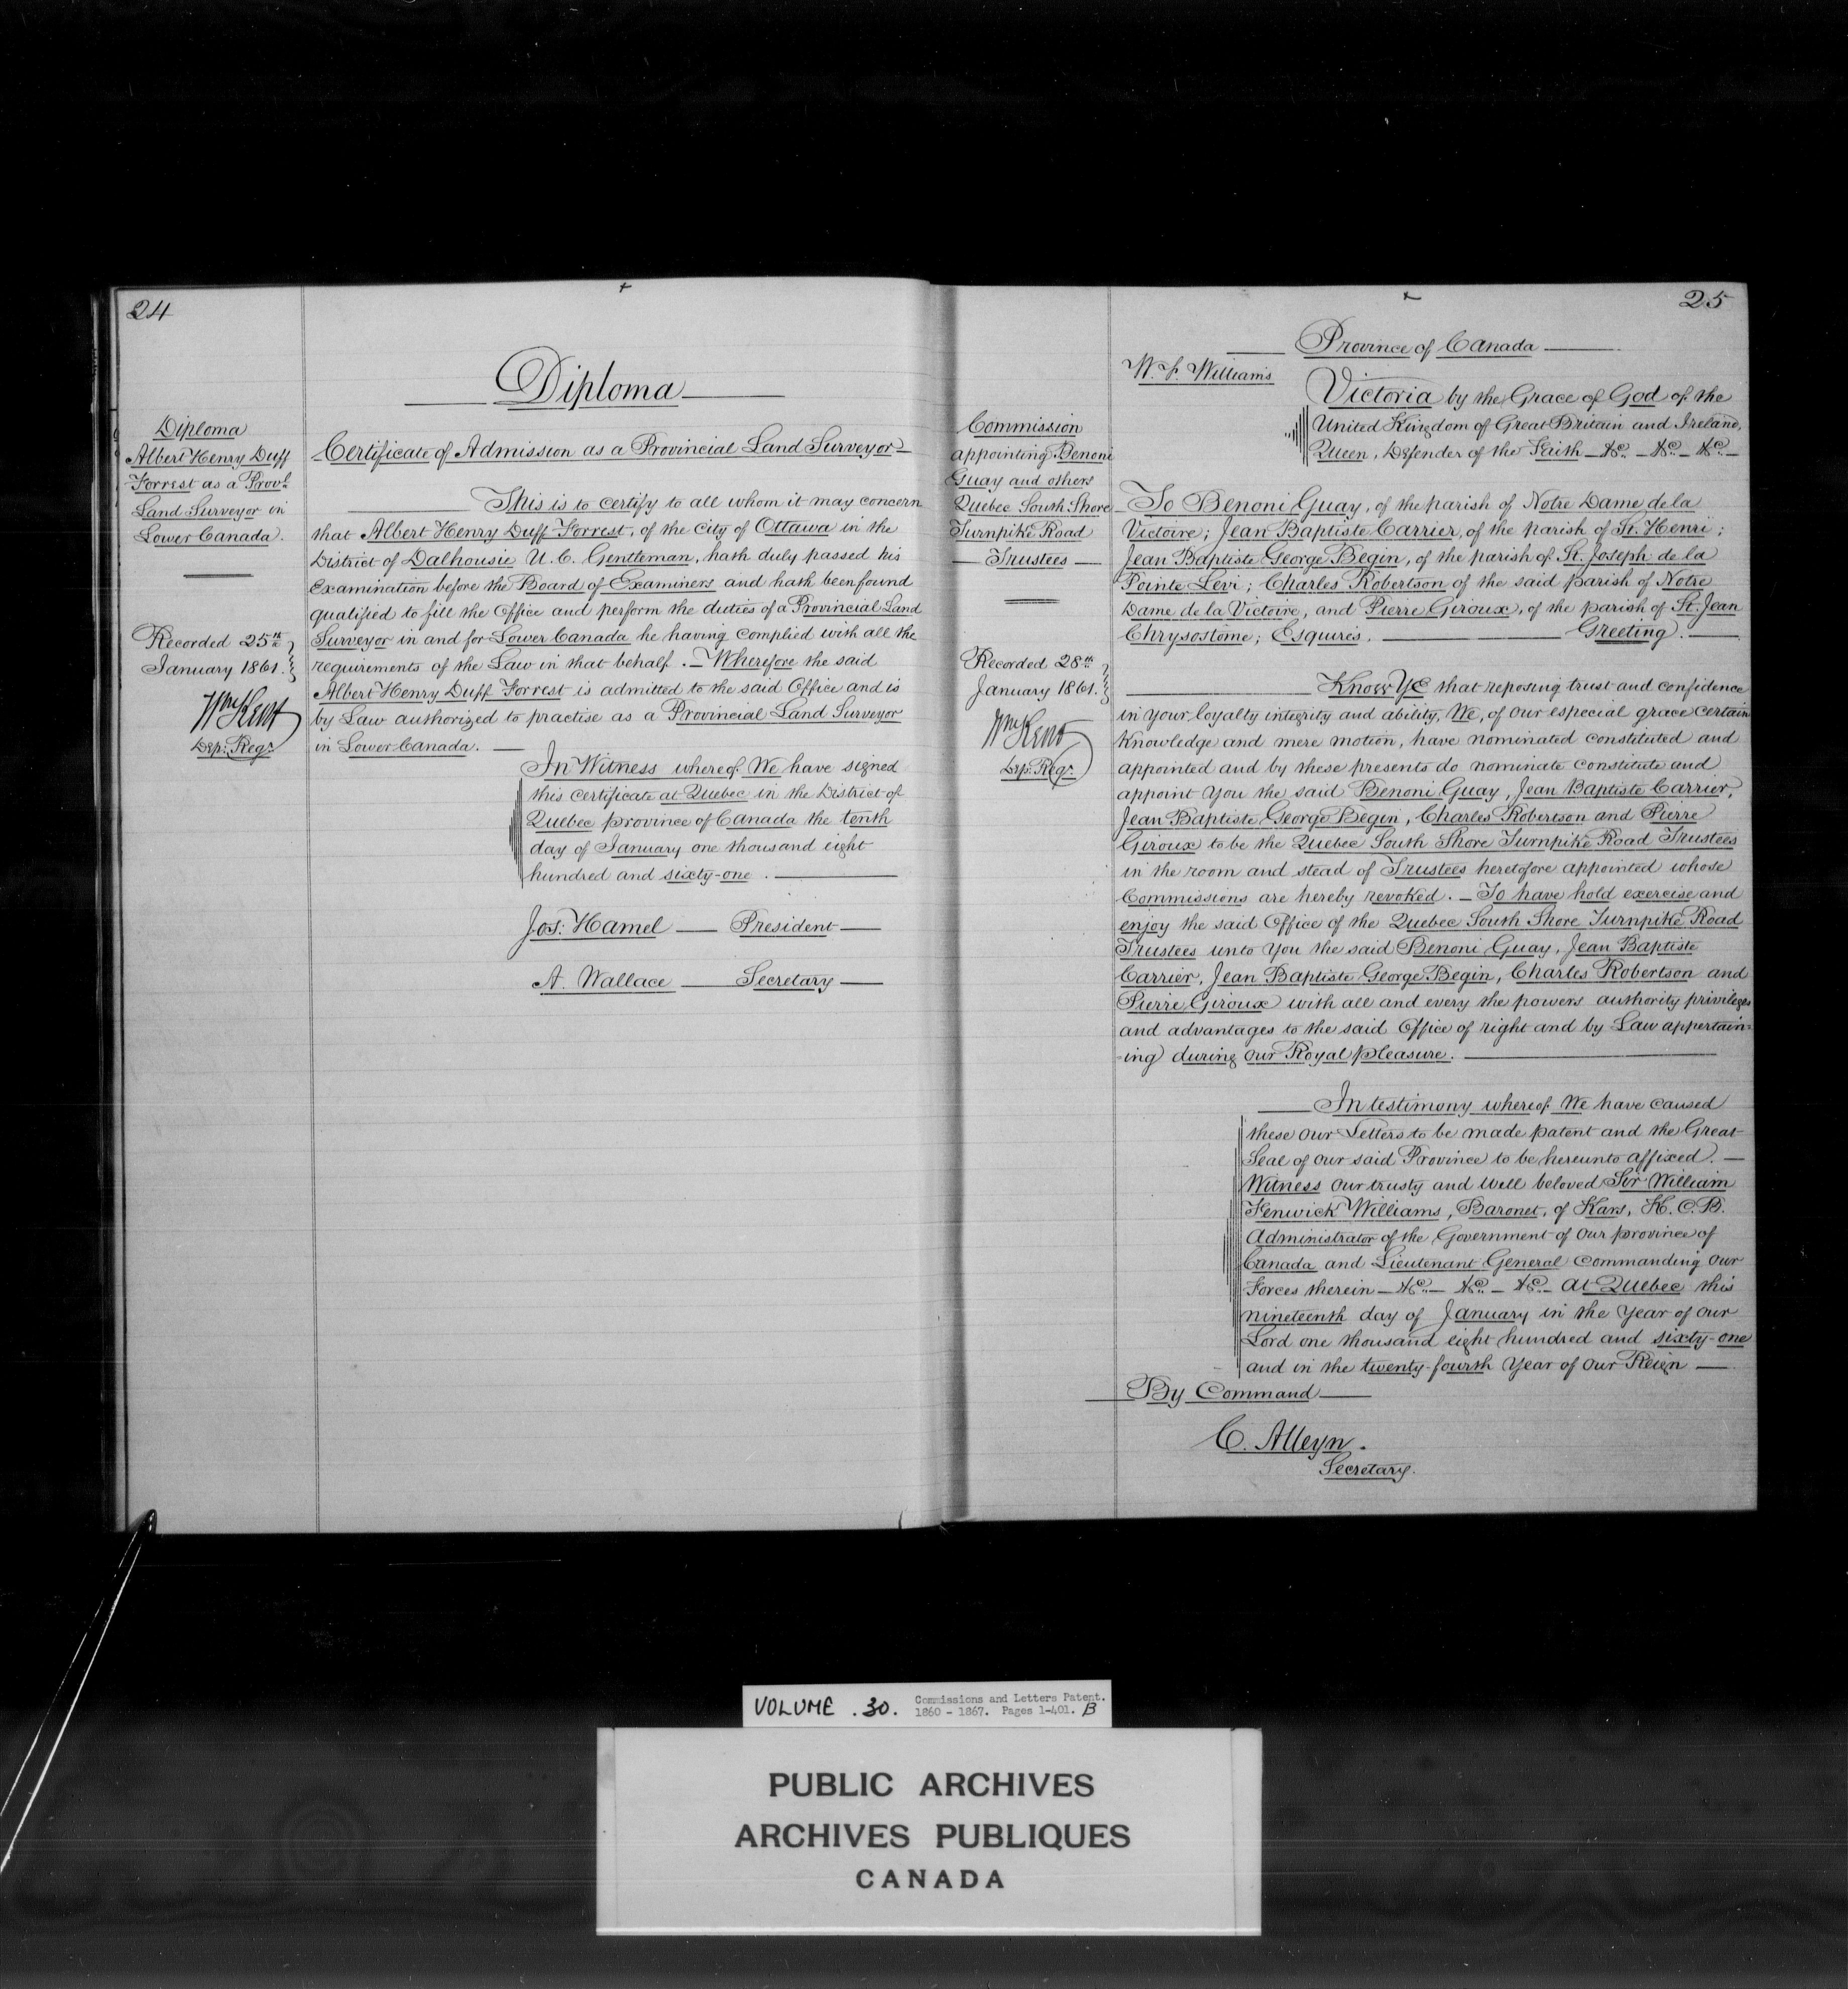 24
Diploma
Albert Henry Duff
Forrest as a Provl
Land Surveyor in
Lower Canada.
Recorded 25th
January 1861.
Wm Kent
Dep: Regr
Diploma
Certificate of Admission as a Provincial Land Surveyor
This is to certify to all whom it may concern
that Albert Henry Duff Forrest, of the City of Ottawa in the
District of Dalhousie U.C. Gentleman, hath duly passed his
Examination before the Board of Examiners and hath been found
qualified to fill the Office and perform the duties of a Provincial Land
Surveyor in and for Lower Canada he having complied with all the
requirements of the Law in that behalf. — Wherefore the said
Albert Henry Duff Forrest is admitted to the said Office and is
by Law authorized to practise as a Provincial Land Surveyor
in Lower Canada. —
In Witness whereof We have signed
this certificate at Quebec in the District of
Quebec province of Canada the tenth
day of January one thousand eight
hundred and sixty-one.
Jos: Hamel — President —
A. Wallace — Secretary —
25
Commission
appointing Benoni
Guay and others
Quebec South Shore
Turnpike Road
Trustees
Recorded 28th
January 1861.
Wm Kent
Dep: Regr
Province of Canada
W. F. Williams
Victoria by the Grace of God of the
United Kingdom of Great Britain and Ireland,
Queen, Defender of the Faith — &c. — &c. — &c. —
To Benoni Guay, of the parish of Notre Dame de la
Victoire; Jean Baptiste Carrier, of the parish of St. Henri;
Jean Baptiste George Begin, of the parish of St. Joseph de la
Pointe Levi; Charles Robertson of the said parish of Notre
Dame de la Victoire, and Pierre Giroux, of the parish of St. Jean
Chrysostôme; Esquires. — Greeting. —
Know Ye that reposing trust and confidence
in your loyalty integrity and ability, We, of our especial grace certain
Knowledge and mere motion, have nominated constituted and
appointed and by these presents do nominate constitute and
appoint You the said Benoni Guay, Jean Baptiste Carrier,
Jean Baptiste George Begin, Charles Robertson and Pierre
Giroux to be the Quebec South Shore Turnpike Road Trustees
in the room and stead of Trustees heretofore appointed whose
Commissions are hereby revoked. — To have hold exercise and
enjoy the said Office of the Quebec South Shore Turnpike Road
Trustees unto You the said Benoni Guay, Jean Baptiste
Carrier, Jean Baptiste George Begin, Charles Robertson and
Pierre Giroux with all and every the powers authority privileges
and advantages to the said Office of right and by Law appertain=
=ing during our Royal pleasure.
In testimony whereof We have caused
these our Letters to be made patent and the Great
Seal of our said Province to be hereunto affixed. —
Witness our trusty and Well beloved Sir William
Fenwick Williams, Baronet, of Kars, K.C.B.
Administrator of the Government of our province of
Canada and Lieutenant General Commanding our
Forces therein — &c. — &c. — &c. — At Quebec this
nineteenth day of January in the Year of our
Lord one thousand eight hundred and sixty-one
and in the twenty-fourth Year of our Reign —
By Command
C. Alleyn.
Secretary.
VOLUME . 30. Commissions and Letters Patent.
1860 - 1867. Pages 1-401. B
PUBLIC ARCHIVES
ARCHIVES PUBLIQUES
CANADA